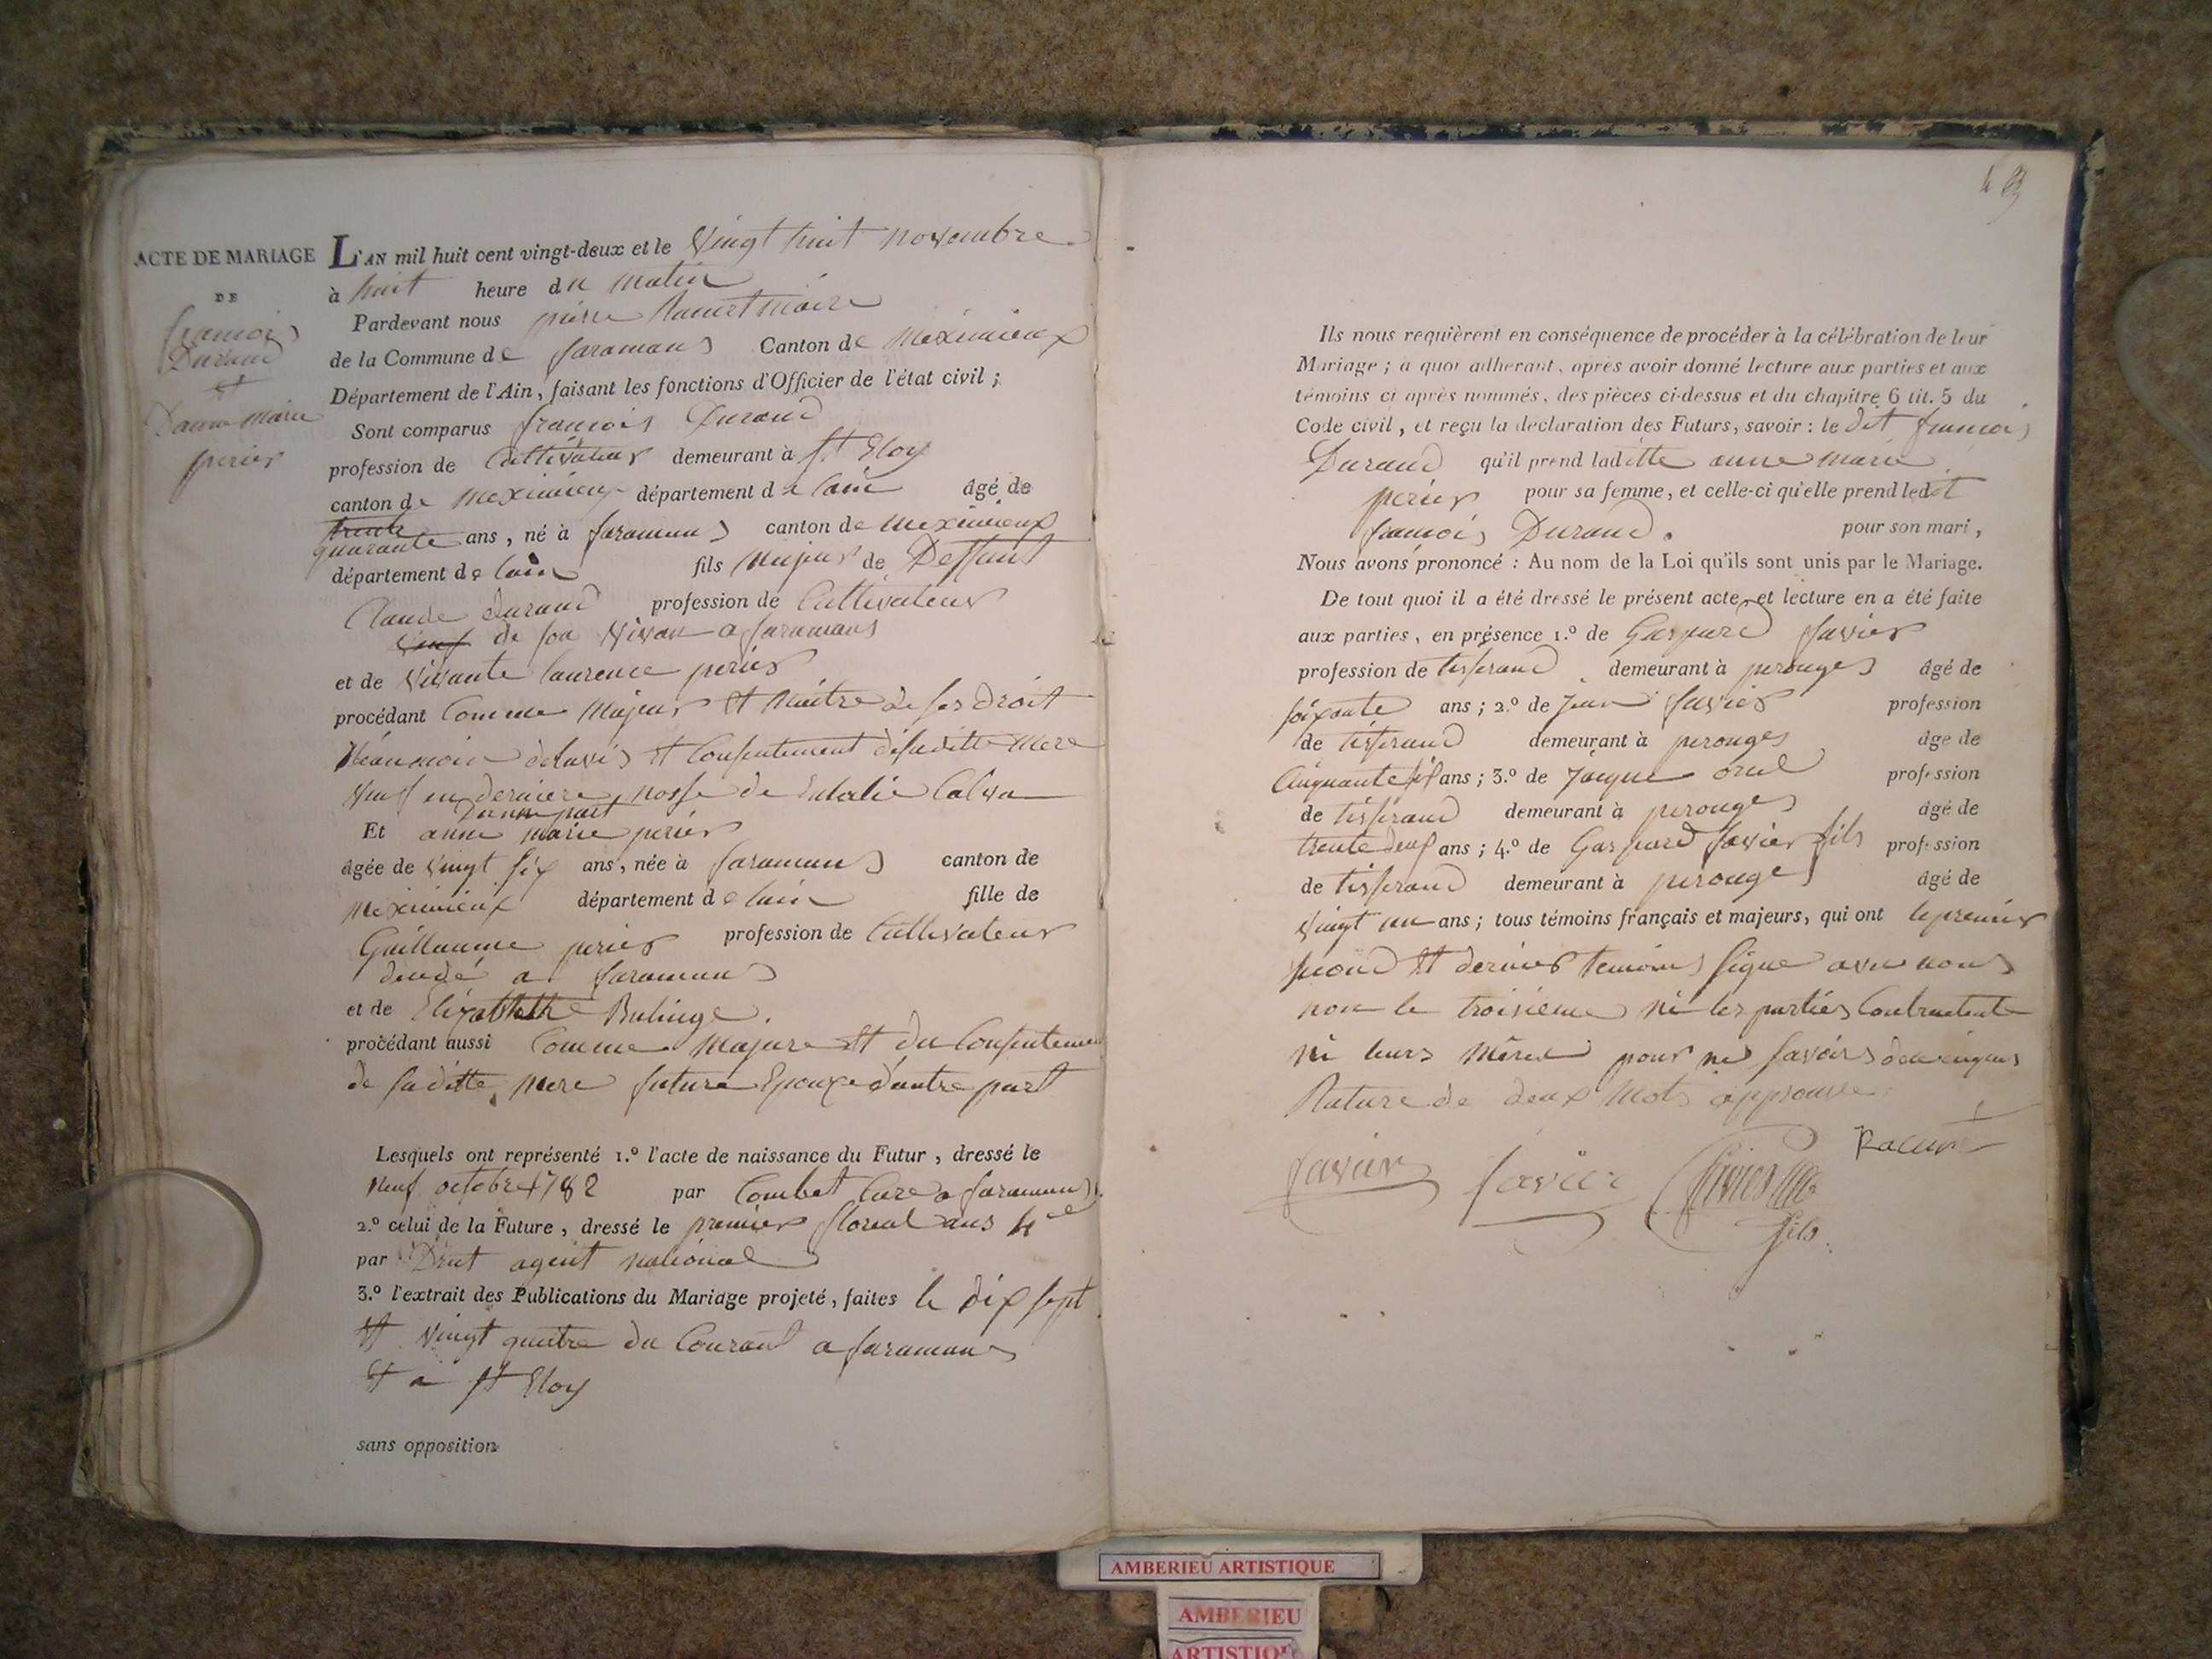 ACTE DE MARIAGE
DE
francois
Durand
et
Danne Marie
perier
L'AN mil huit cent vingt-deux et le Vingt huit novembre
à huit heure du matin
Pardevant nous pierre maire
de la Commune de faramans Canton de Meximieux
Département de l'Ain, faisant les fonctions d'Officier de l'état civil ;
Sont comparus francois Durand
profession de Cultivateur demeurant à St Eloy
canton de meximieux département de lain âgé de
trente
quarante ans, né à faramans canton de meximieux
département de lain fils majeur de Deffunt
Claude durand profession de Cultivateur
de son vivan a faramans
et de vivante laurence perier
procédant Comme Majeur et maitre de ses droit
delavis et Consentement desaditte mere
veuf en derniere nosse de Eulalie
Dune part
Et anne marie perier
âgée de vingt six ans, née à faramans canton de
Meximieux département de lain fille de
Guillaume perier profession de Cultivateur
a faramans
et de Elizabethe
procédant aussi Comme Majure et du Consenteme
de saditte mere future Epouze d'autre part
Lesquels ont représenté 1.º l'acte de naissance du Futur, dressé le
Neuf octobre 1782 par Combet Cure a faramans
2.º celui de la Future, dressé le premier floreal ans 4e
par agent national
3.º l'extrait des Publications du Mariage projeté, faites le dix sept
et vingt quatre du Courant a faramans
et a St Eloy
sans opposition
Ils nous requièrent en conséquence de procéder à la célébration de leur
Mariage ; a quoi adhérant, après avoir donné lecture aux parties et aux
témoins ci après nommés, des pièces ci-dessus et du chapitre 6 tit. 5 du
Code civil, et reçu la déclaration des Futurs, savoir : le dit francois
Durand qu'il prend laditte anne marie
perier pour sa femme, et celle-ci qu'elle prend ledit
francois Durand. pour son mari,
Nous avons prononcé : Au nom de la Loi qu'ils sont unis par le Mariage.
De tout quoi il a été dressé le présent acte, et lecture en a été faite
aux parties, en présence 1.º de Gaspard favier
profession de tisserand demeurant à perouges âgé de
soixante ans ; 2.º de Jean favier profession
de tisserand demeurant à perouges âge de
Cinquante six ans ; 3.º de Jacque profession
de tisserand demeurant à perouges âgé de
trente deux ans ; 4.º de Gaspard favier fils profession
de tisserand demeurant à perouges âgé de
vingt un ans ; tous témoins français et majeurs, qui ont le premier
second et dernier temoins signe avec nous
non le troisieme ni les parties Contractante
ni leurs Meres pour ne savoir
Rature de deux Mots approuvé
favier favier favier fils
AMBERIEU ARTISTIQUE
AMBERIEU
ARTISTIQUE